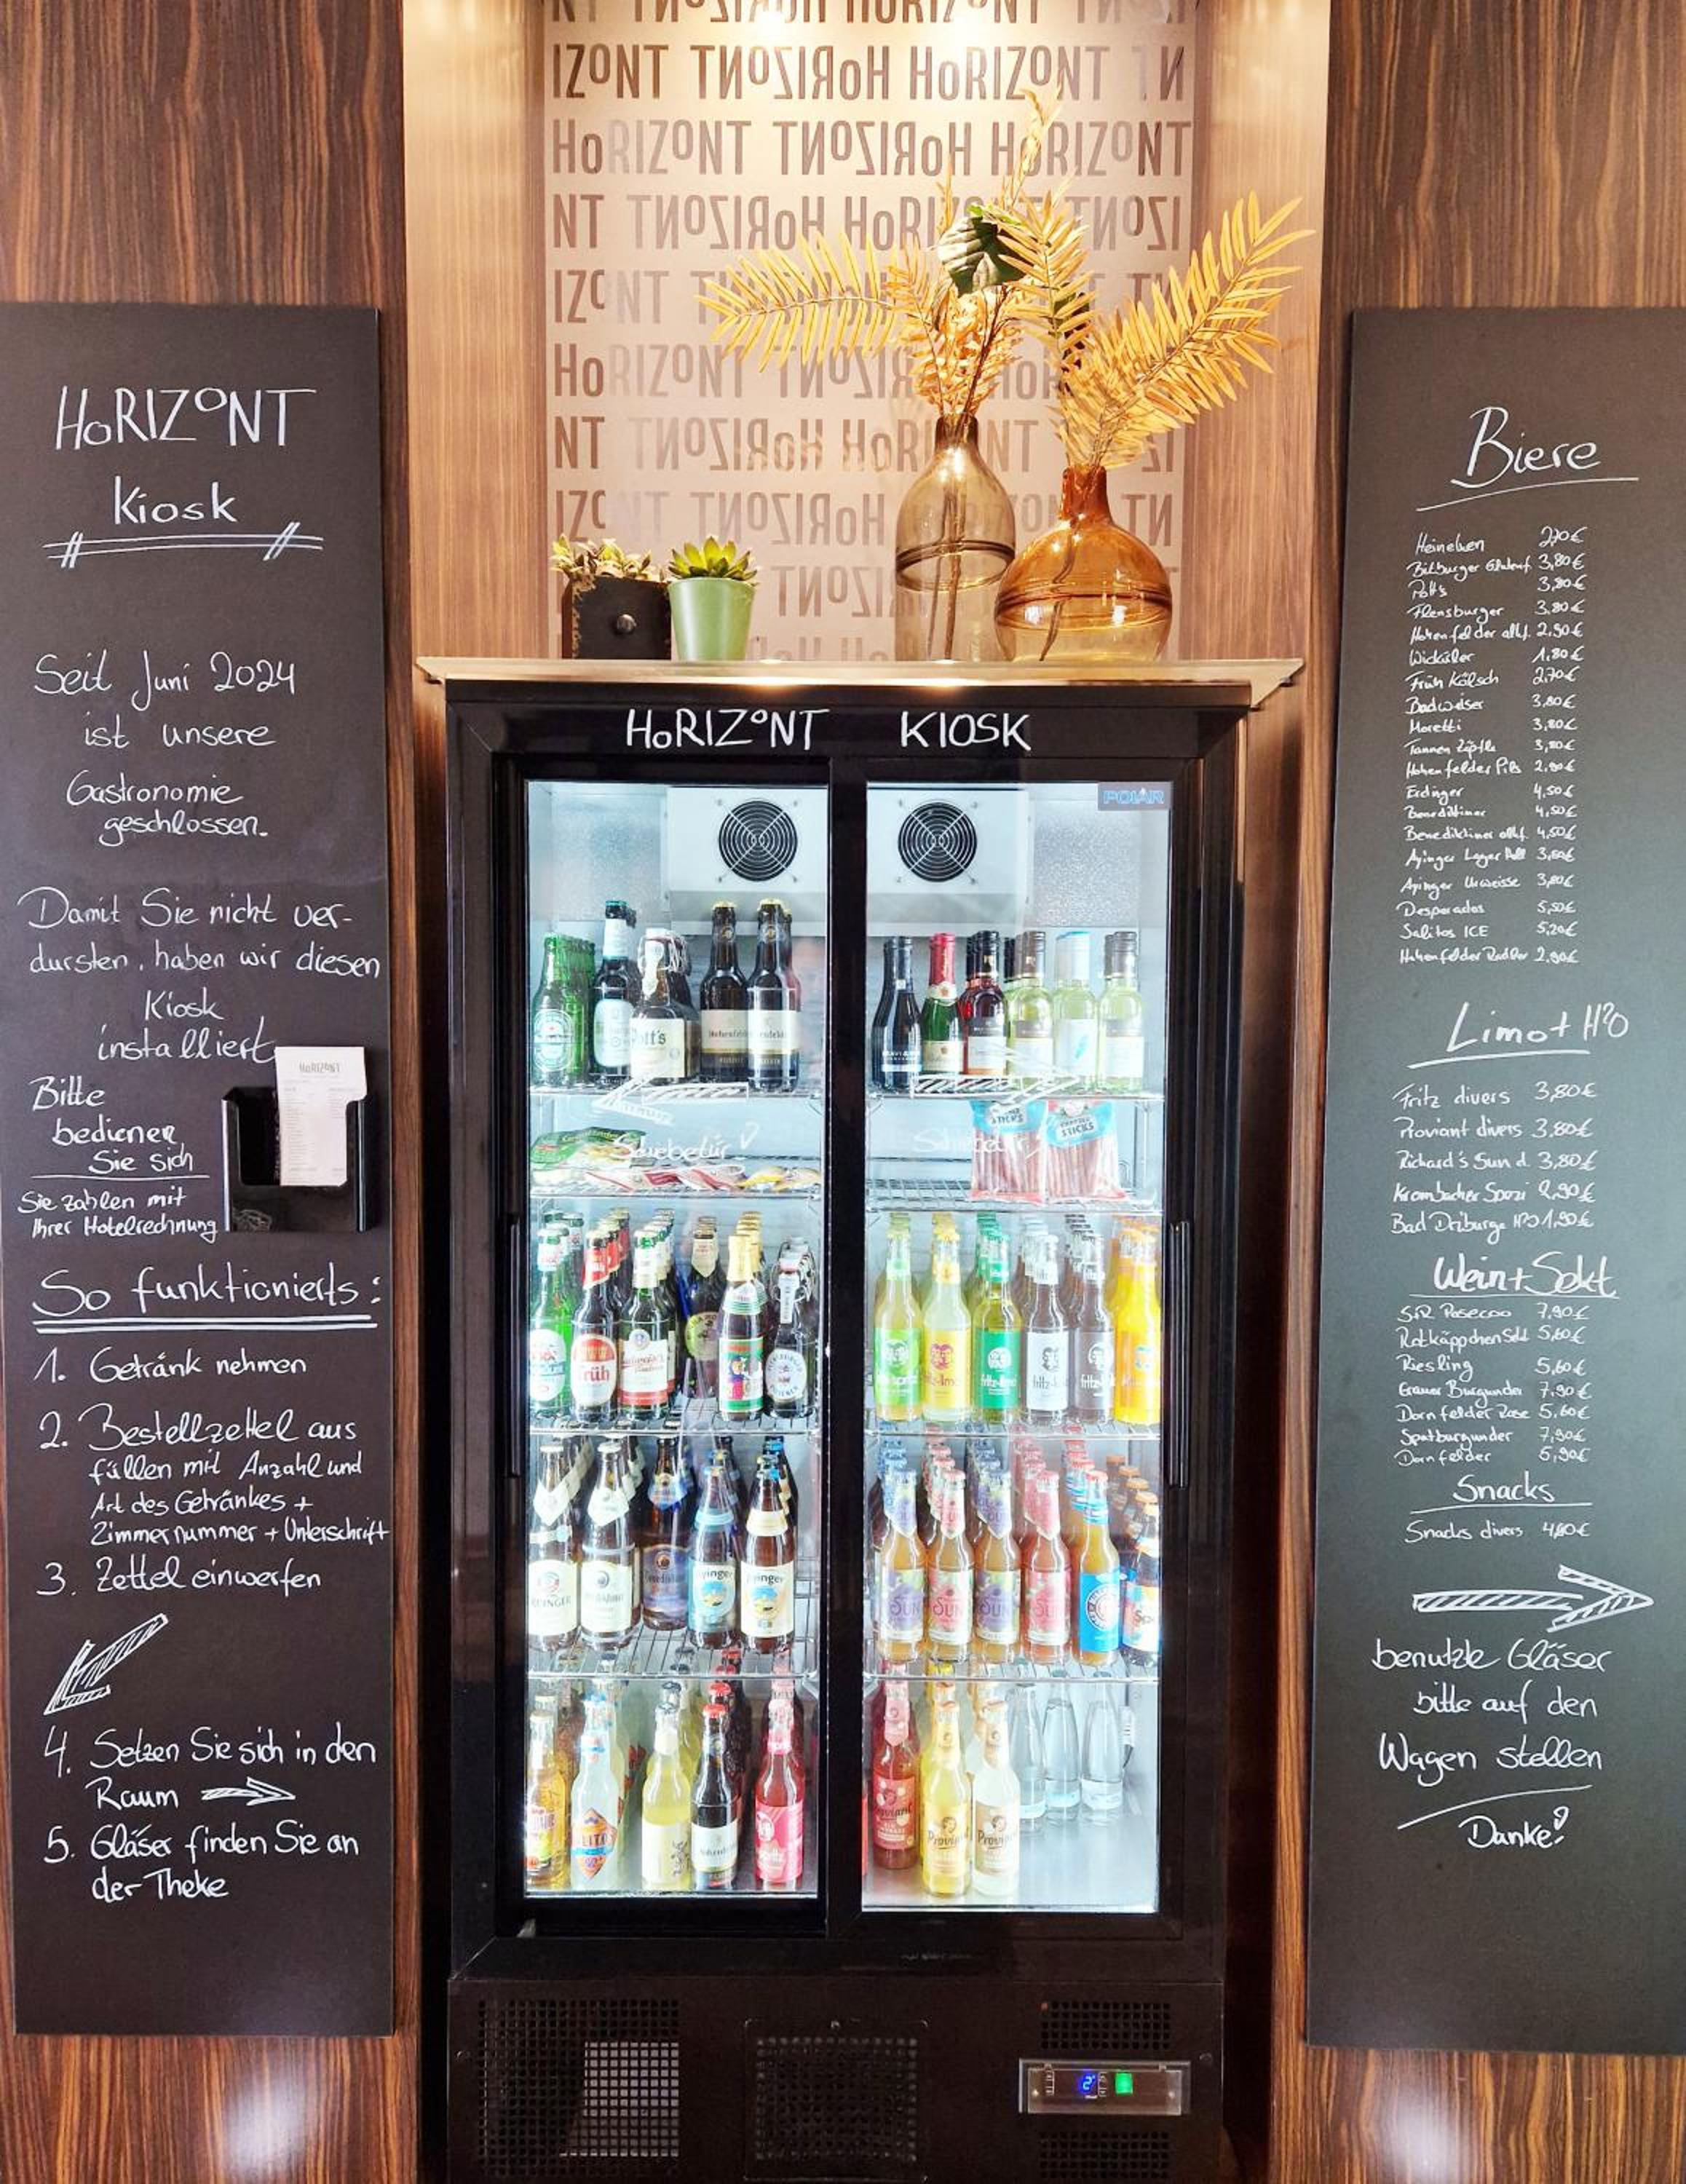 IZoNT TNOZIROH HoRIZoNT
HoRIZoNT TNOZIROH HoRIZoNT
HoRIZoNT
Kiosk
Seit Juni 2024
ist unsere
Gastronomie
geschlossen.
Damit Sie nicht ver-
dursten, haben wir diesen
Kiosk
installiert
Bitte
bedienen
Sie sich
Sie zahlen mit
Ihrer Hotelrechnung
So funktionierts:
1. Getränk nehmen
2. Bestellzettel aus
füllen mit Anzahl und
Art des Getränkes +
Zimmernummer + Unterschrift
3. Zettel einwerfen
4. Setzen Sie sich in den
Raum
5. Gläser finden Sie an
der Theke
HoRIZoNT
HoRIZoNT KIOSK
POLAR
STICKS
STICKS
Früh
fritz-limo
Proviant
Proviant
Biere
Heineken
Bitburger 3,80€
Pott's 3,80€
Flensburger 3,80€
Hohenfelder alkf. 2,90€
Wicküler 1,80€
Früh Kölsch 2,70€
Budweiser 3,80€
Moretti 3,80€
Tannen Zäpfle 3,80€
Hohenfelder Pils 2,90€
Erdinger 4,50€
Benediktiner 4,50€
Benediktiner alkf. 4,50€
Ayinger Lager Hell 3,80€
Ayinger Urweisse 3,80€
Desperados 5,50€
Salitos ICE 5,20€
Hohenfelder Radler 2,90€
Limo + H2O
Fritz divers 3,80€
Proviant divers 3,80€
Richard's Sun d. 3,80€
Krombacher Spezi 2,90€
Bad Driburger H2O 1,90€
Wein + Sekt
Prosecco 7,90€
Rotkäppchen Sekt 5,60€
Riesling 5,60€
Grauer Burgunder 7,90€
Dornfelder Rose 5,60€
Spätburgunder 7,90€
Dornfelder 5,90€
Snacks
Snacks divers
benutzte Gläser
bitte auf den
Wagen stellen
Danke!